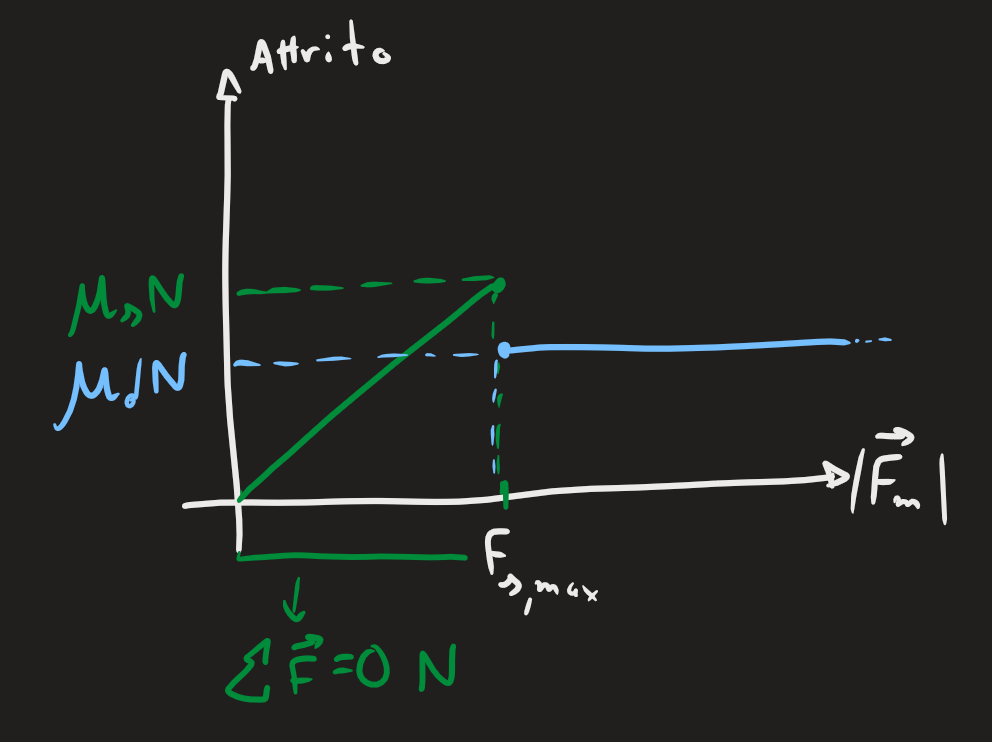 Attrito
μₛN
μ_dN
|F⃗ₘ|
F_s,max
ΣF⃗ = 0 N